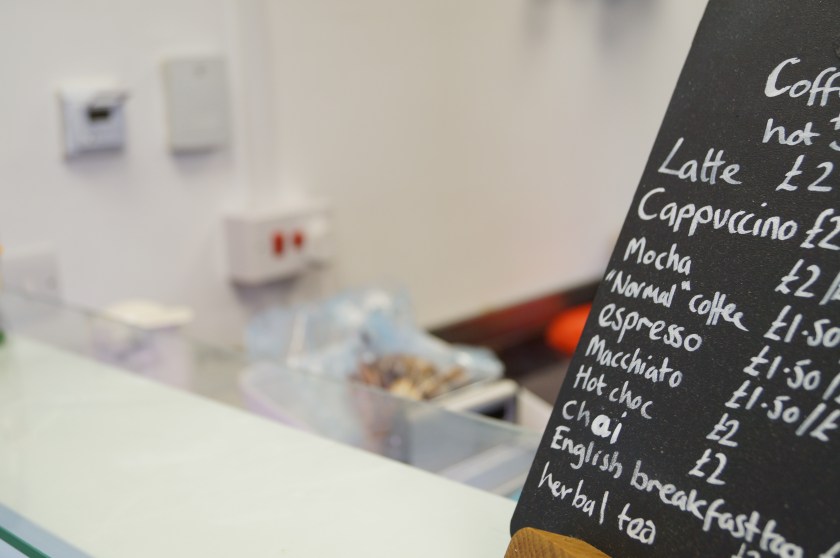 Coff
hot
Latte £2
Cappuccino £2
Mocha £2/
"Normal" coffee £1.50
espresso £1.50/
Macchiato £1.50/£
Hot choc £2
Chai £2
English breakfast tea
herbal tea